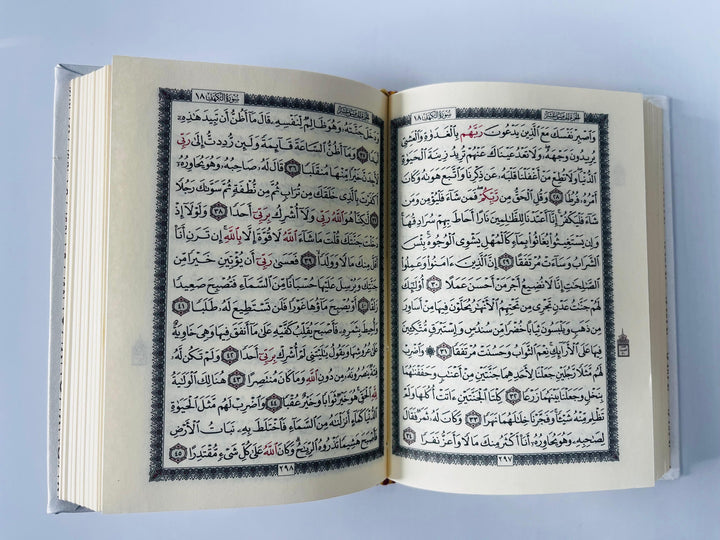 الجزء الخامس عشر سورة الكهف ١٨
وَٱصْبِرْ نَفْسَكَ مَعَ ٱلَّذِينَ يَدْعُونَ رَبَّهُم بِٱلْغَدَوٰةِ وَٱلْعَشِىِّ
يُرِيدُونَ وَجْهَهُۥ وَلَا تَعْدُ عَيْنَاكَ عَنْهُمْ تُرِيدُ زِينَةَ ٱلْحَيَوٰةِ
ٱلدُّنْيَا وَلَا تُطِعْ مَنْ أَغْفَلْنَا قَلْبَهُۥ عَن ذِكْرِنَا وَٱتَّبَعَ هَوَىٰهُ وَكَانَ
أَمْرُهُۥ فُرُطًا ٢٨ وَقُلِ ٱلْحَقُّ مِن رَّبِّكُمْ فَمَن شَآءَ فَلْيُؤْمِن وَمَن
شَآءَ فَلْيَكْفُرْ إِنَّآ أَعْتَدْنَا لِلظَّٰلِمِينَ نَارًا أَحَاطَ بِهِمْ سُرَادِقُهَا
وَإِن يَسْتَغِيثُوا۟ يُغَاثُوا۟ بِمَآءٍ كَٱلْمُهْلِ يَشْوِى ٱلْوُجُوهَ بِئْسَ
ٱلشَّرَابُ وَسَآءَتْ مُرْتَفَقًا ٢٩ إِنَّ ٱلَّذِينَ ءَامَنُوا۟ وَعَمِلُوا۟
ٱلصَّٰلِحَٰتِ إِنَّا لَا نُضِيعُ أَجْرَ مَنْ أَحْسَنَ عَمَلًا ٣٠ أُو۟لَٰٓئِكَ
لَهُمْ جَنَّٰتُ عَدْنٍ تَجْرِى مِن تَحْتِهِمُ ٱلْأَنْهَٰرُ يُحَلَّوْنَ فِيهَا مِنْ أَسَاوِرَ
مِن ذَهَبٍ وَيَلْبَسُونَ ثِيَابًا خُضْرًا مِّن سُندُسٍ وَإِسْتَبْرَقٍ مُّتَّكِـِٔينَ
فِيهَا عَلَى ٱلْأَرَآئِكِ نِعْمَ ٱلثَّوَابُ وَحَسُنَتْ مُرْتَفَقًا ٣١ ۞ وَٱضْرِبْ
لَهُم مَّثَلًا رَّجُلَيْنِ جَعَلْنَا لِأَحَدِهِمَا جَنَّتَيْنِ مِنْ أَعْنَٰبٍ وَحَفَفْنَٰهُمَا
بِنَخْلٍ وَجَعَلْنَا بَيْنَهُمَا زَرْعًا ٣٢ كِلْتَا ٱلْجَنَّتَيْنِ ءَاتَتْ أُكُلَهَا وَلَمْ
تَظْلِم مِّنْهُ شَيْـًٔا وَفَجَّرْنَا خِلَٰلَهُمَا نَهَرًا ٣٣ وَكَانَ لَهُۥ ثَمَرٌ فَقَالَ
لِصَٰحِبِهِۦ وَهُوَ يُحَاوِرُهُۥٓ أَنَا۠ أَكْثَرُ مِنكَ مَالًا وَأَعَزُّ نَفَرًا ٣٤
٢٩٧
الجزء الخامس عشر سورة الكهف ١٨
وَدَخَلَ جَنَّتَهُۥ وَهُوَ ظَالِمٌ لِّنَفْسِهِۦ قَالَ مَآ أَظُنُّ أَن تَبِيدَ هَٰذِهِۦٓ
أَبَدًا ٣٥ وَمَآ أَظُنُّ ٱلسَّاعَةَ قَآئِمَةً وَلَئِن رُّدِدتُّ إِلَىٰ رَبِّى
لَأَجِدَنَّ خَيْرًا مِّنْهَا مُنقَلَبًا ٣٦ قَالَ لَهُۥ صَاحِبُهُۥ وَهُوَ يُحَاوِرُهُۥٓ
أَكَفَرْتَ بِٱلَّذِى خَلَقَكَ مِن تُرَابٍ ثُمَّ مِن نُّطْفَةٍ ثُمَّ سَوَّىٰكَ رَجُلًا
٣٧ لَّٰكِنَّا۠ هُوَ ٱللَّهُ رَبِّى وَلَآ أُشْرِكُ بِرَبِّىٓ أَحَدًا ٣٨ وَلَوْلَآ إِذْ
دَخَلْتَ جَنَّتَكَ قُلْتَ مَا شَآءَ ٱللَّهُ لَا قُوَّةَ إِلَّا بِٱللَّهِ إِن تَرَنِ أَنَا۠
أَقَلَّ مِنكَ مَالًا وَوَلَدًا ٣٩ فَعَسَىٰ رَبِّىٓ أَن يُؤْتِيَنِ خَيْرًا مِّن
جَنَّتِكَ وَيُرْسِلَ عَلَيْهَا حُسْبَانًا مِّنَ ٱلسَّمَآءِ فَتُصْبِحَ صَعِيدًا
زَلَقًا ٤٠ أَوْ يُصْبِحَ مَآؤُهَا غَوْرًا فَلَن تَسْتَطِيعَ لَهُۥ طَلَبًا ٤١
وَأُحِيطَ بِثَمَرِهِۦ فَأَصْبَحَ يُقَلِّبُ كَفَّيْهِ عَلَىٰ مَآ أَنفَقَ فِيهَا وَهِىَ خَاوِيَةٌ
عَلَىٰ عُرُوشِهَا وَيَقُولُ يَٰلَيْتَنِى لَمْ أُشْرِكْ بِرَبِّىٓ أَحَدًا ٤٢ وَلَمْ تَكُن لَّهُۥ
فِئَةٌ يَنصُرُونَهُۥ مِن دُونِ ٱللَّهِ وَمَا كَانَ مُنتَصِرًا ٤٣ هُنَالِكَ ٱلْوَلَٰيَةُ
لِلَّهِ ٱلْحَقِّ هُوَ خَيْرٌ ثَوَابًا وَخَيْرٌ عُقْبًا ٤٤ وَٱضْرِبْ لَهُم مَّثَلَ ٱلْحَيَوٰةِ
ٱلدُّنْيَا كَمَآءٍ أَنزَلْنَٰهُ مِنَ ٱلسَّمَآءِ فَٱخْتَلَطَ بِهِۦ نَبَاتُ ٱلْأَرْضِ
فَأَصْبَحَ هَشِيمًا تَذْرُوهُ ٱلرِّيَٰحُ وَكَانَ ٱللَّهُ عَلَىٰ كُلِّ شَىْءٍ مُّقْتَدِرًا ٤٥
٢٩٨